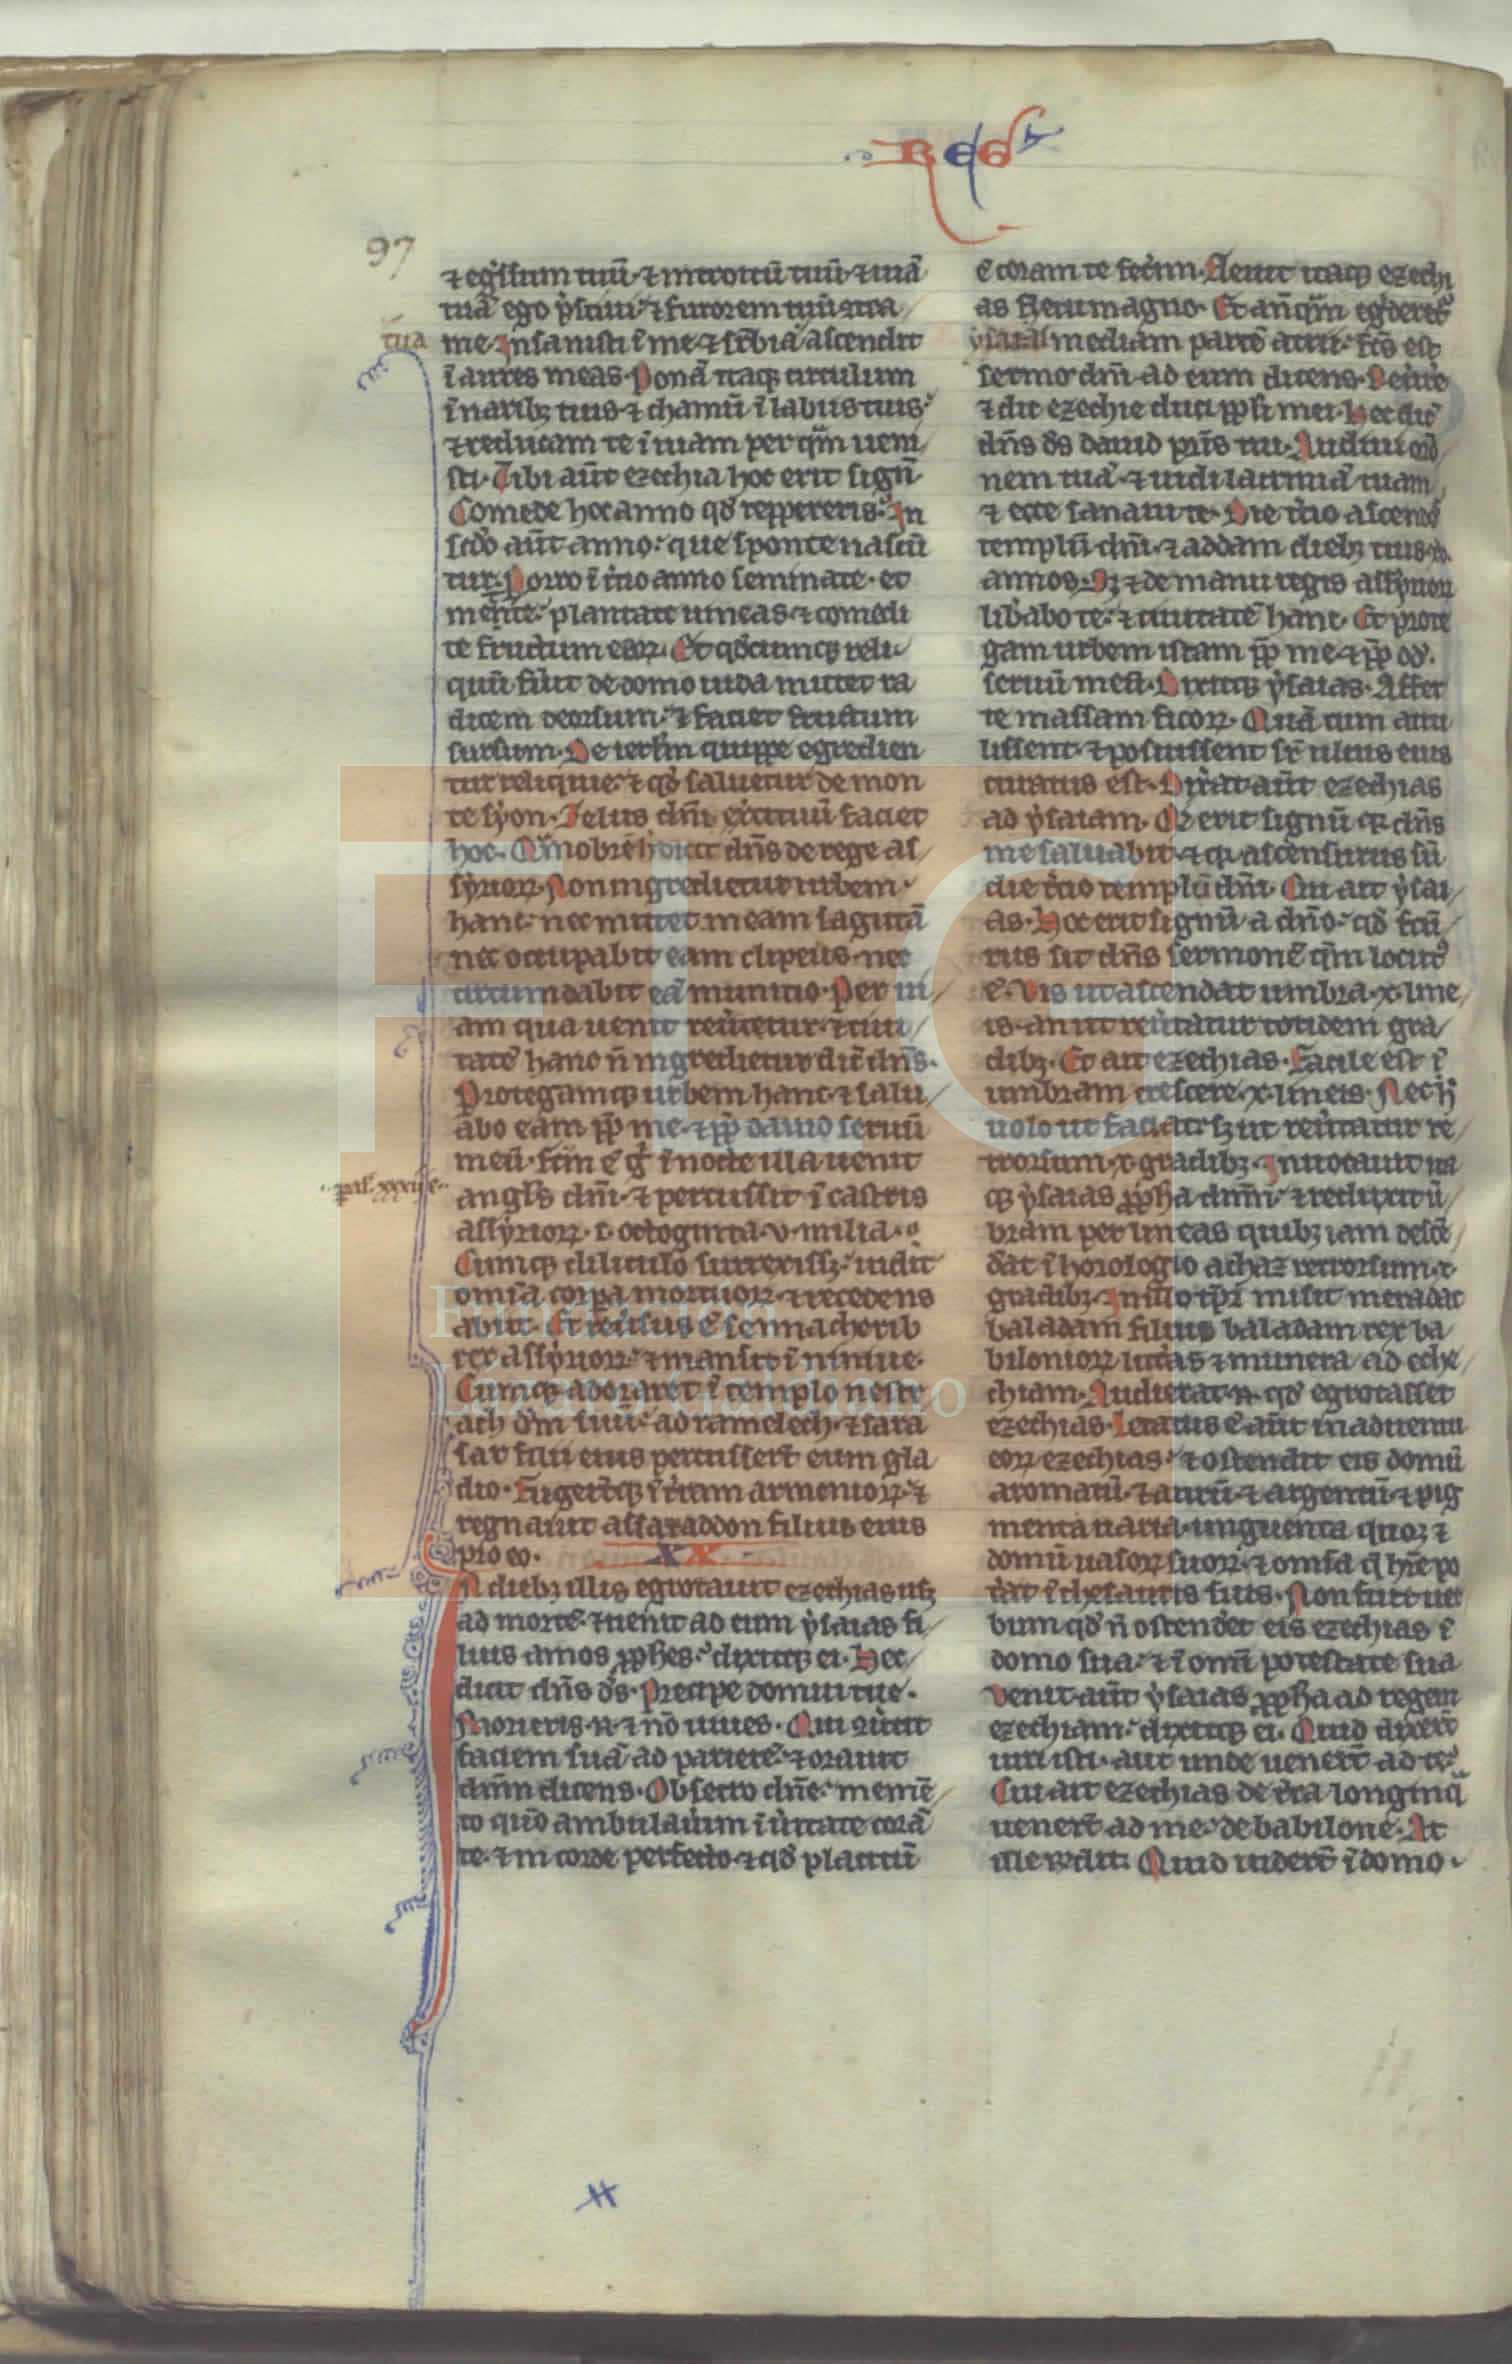 REG
97
⁊ eg̃ssum tuũ ⁊ introitũ tuũ ⁊ uiã
tuã ego p̃sciui ⁊ furorem tuũ ɔtra
tua
me. Insanisti ĩ me ⁊ suꝑbia ascendit
ĩ aures meas. Ponã itaqꝫ circulum
ĩ naribꝫ tuis ⁊ chamũ ĩ labiis tuis
⁊ reducam te ĩ uiam per qᷓm ueni
sti. Tibi aũt ezechia hoc erit signũ
Comede hoc anno qd̃ reppereris. In
scd̃o aũt anno que sponte nascũ
tur. Porro ĩ t̃cio anno seminate et
metite plantate uineas ⁊ comedi
te fructum eaꝝ. Et qd̃cumqꝫ reli
quũ fũit de domo iuda mittet ra
dicem deorsum ⁊ faciet fructum
sursum. De ierl̃m quippe egredien
tur reliquie ⁊ qd̃ saluetur de mon
te syon. Zelus dñi exercituũ faciet
hoc. Qᷓmobrem h̾ dicit dñs de rege as
syrioꝝ. Non ingredietur urbem
hanc nec mittet in eam sagittã
nec occupabit eam clipeus nec
circumdabit eã munitio. Per ui
am qua uenit reũtetur ⁊ ciui
tatẽ hanc ñ ingredietur dic̃ dñs.
Protegamqꝫ urbem hanc ⁊ salu
abo eam ꝓp̃ me ⁊ ꝓp̃ dauid seruũ
meũ. fc̃m ẽ g̃ ĩ nocte illa uenit
angl̃s dñi ⁊ percussit ĩ castris
assyrioꝝ .c. octoginta .v. milia.
Cumqꝫ diliculo surrexissꝫ uidit
omĩa corꝑa mortuoꝝ ⁊ recedens
abiit. Et reũsus ẽ sennacherib
rex assyrioꝝ ⁊ mansit ĩ niniue.
Cumqꝫ adoraret ĩ templo nesr
ach dm̃ suũ adramelech ⁊ sara
sar filii eius percusserũt eum gla
dio. Fugerũtqꝫ ĩ t̃ram armenioꝝ ⁊
regnauit assaraddon filius eius
pro eo. XX
In diebꝫ illis egrotauit ezechias usqꝫ
ad mortẽ ⁊ uenit ad eum ysaias fi
lius amos ꝓph̃es dixitqꝫ ei. Hec
dicit dñs ds̃. Precipe domui tue.
Morieris .n. ⁊ nõ uiues. Qui ɔũtit
faciem suã ad parietẽ ⁊ orauit
dñm dicens. Obsecro dñe memẽ
to quõ ambulauim̃ ĩ ũitate corã
te ⁊ in corde perfecto ⁊ qd̃ placitũ
ẽ coram te fecerim. Fleuit itaqꝫ ezechi
as fletu magno. Et añqᷓm egd̃eretᷣ
ysaias mediam partẽ atrii fc̃s est
sermo dñi ad eum dicens. Reũtere
⁊ dic ezechie duci ppl̃i mei. Hec dic̃
dñs ds̃ dauid pr̃is tui. Audiui orõ
nem tuã ⁊ uidi lacrimã tuam
⁊ ecce sanaui te. Die t̃cio ascendes
templũ dñi ⁊ addam diebꝫ tuis .xv.
annos. Sꝫ ⁊ de manu regis assyrioꝝ
lib̃abo te ⁊ ciuitatẽ hanc. Et prote
gam urbem istam ꝓp̃ me ⁊ ꝓp̃ dd̃.
seruũ meũ. Dixitqꝫ ysaias. Affer
te massam ficoꝝ. Quã cum attu
lissent ⁊ posuissent sr̃ ulcus eius
curatus est. Dix̃at aũt ezechias
ad ysaiam. Qd̃ erit signũ qꝛ dñs
me saluabit ⁊ qꝛ ascensurus sũ
die t̃cio templũ dñi. Cui ait ysai
as. Hoc erit signũ a dño qd̃ fctũ
rus sit dñs sermonẽ qᷓm locutꝰ
ẽ. Vis ut ascendat umbra .x. line
is an ut reũtatur totidem gra
dibꝫ. Et ait ezechias. Facile est ĩ
umbram crescere .x. lineis. Nec h̾
uolo ut fiat sꝫ ut reũtatur re
trorsum .x. gradibꝫ. Inuocauit ita
qꝫ ysaias ꝓph̃a dñm ⁊ reduxit ũ
bram per lineas quibꝫ iam descẽ
d̃at ĩ horologio achaz retrorsum .x.
gradibꝫ. In illo tp̃r̃ misit meradac
baladam filius baladam rex ba
bilonioꝝ litt̃as ⁊ munera ad eche
chiam. Audierat .n. qd̃ egrotasset
ezechias. Letatus ẽ aũt in aduentu
eoꝝ ezechias ⁊ ostendit eis domũ
aromatũ ⁊ aurũ ⁊ argentũ ⁊ pig
menta uaria unguenta quoqꝫ ⁊
domũ uasoꝝ suoꝝ ⁊ omĩa q̃ hr̃e po
t̃at ĩ thesauris suis. Non fuit uer
bum qd̃ ñ ostend̃et eis ezechias ĩ
domo sua ⁊ ĩ omĩ potestate sua
Venit aũt ysaias ꝓph̃a ad regem
ezechiam dixitqꝫ ei. Quid dixerũt
uiri isti aut unde uenerũt ad te.
Cui ait ezechias de t̃ra longinq̃
uenerũt ad me de babilone. At
ille r̃ndit. Quid uiderũt ĩ domo
Fundación
Lázaro Galdiano
FLG